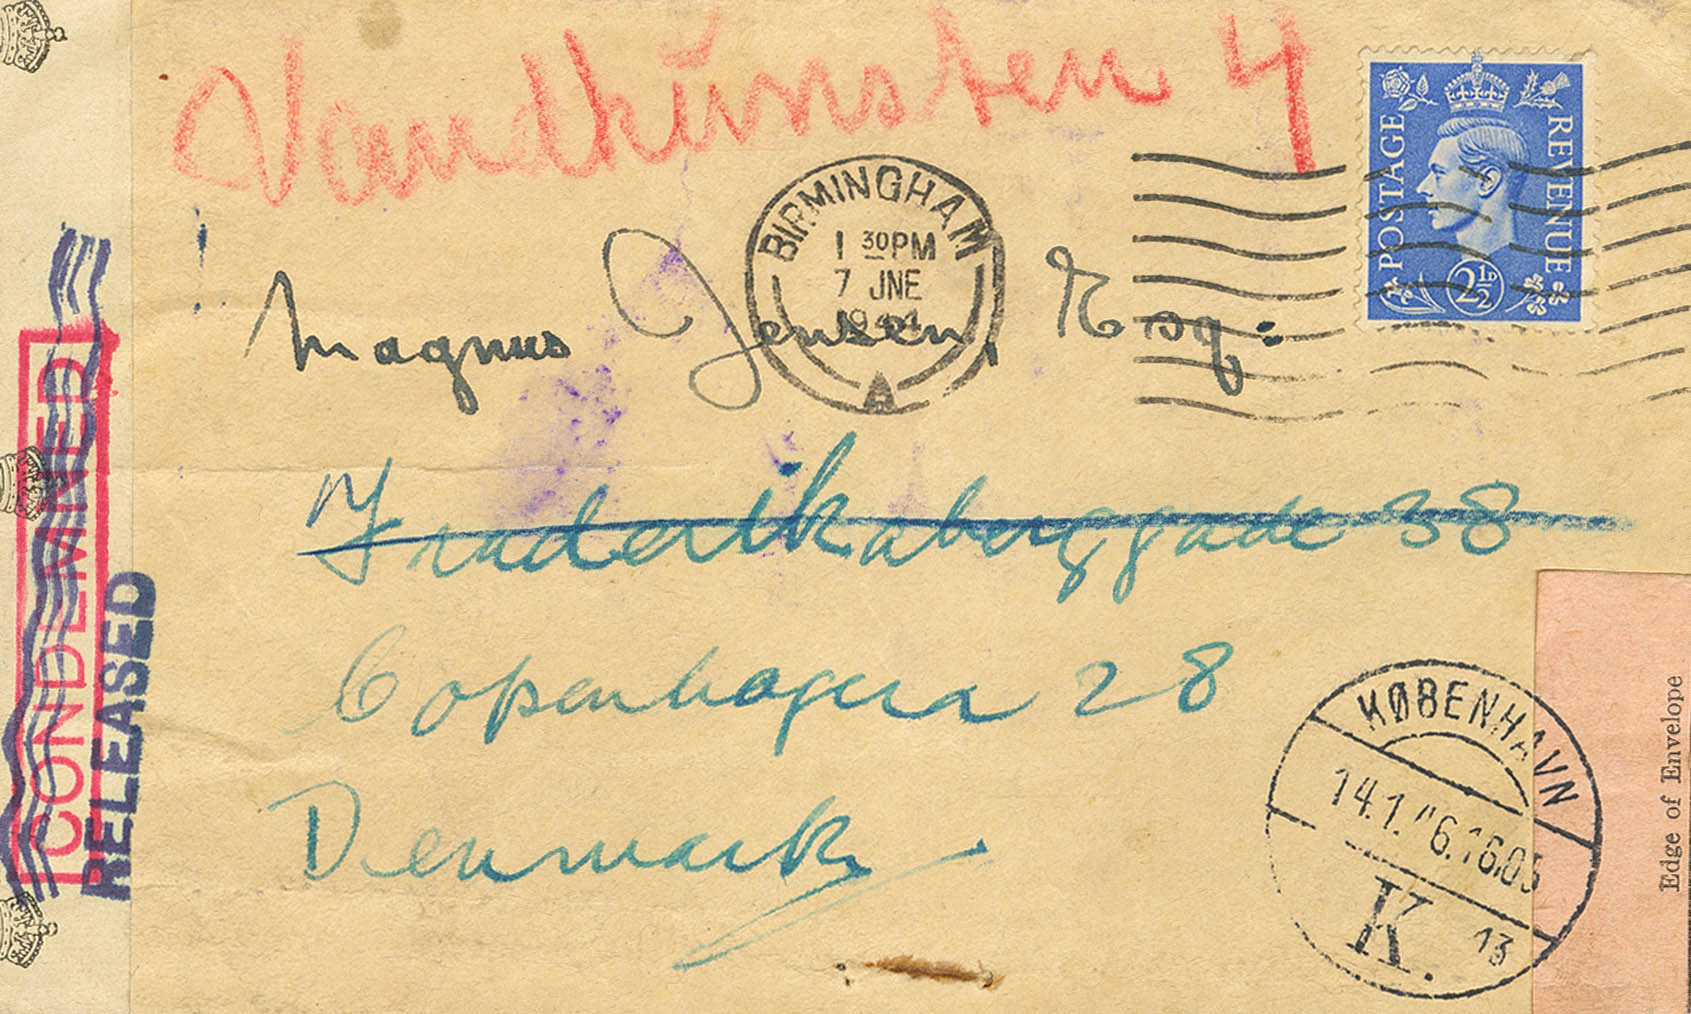 Vandkunsten 4
BIRMINGHAM
1 30 PM
7 JNE
1944
A
POSTAGE
REVENUE
2½D
Magnus Jensen, Esq.
Frederiksberggade 38
Copenhagen 28
Denmark
CONDEMNED
RELEASED
KØBENHAVN
14.1. 46.16.05
K. 13
Edge of Envelope